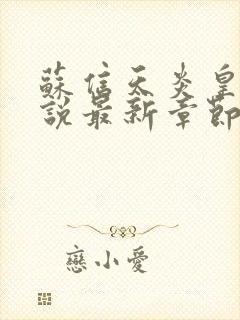 蘇信天炎皇
說最新章節
戀小愛